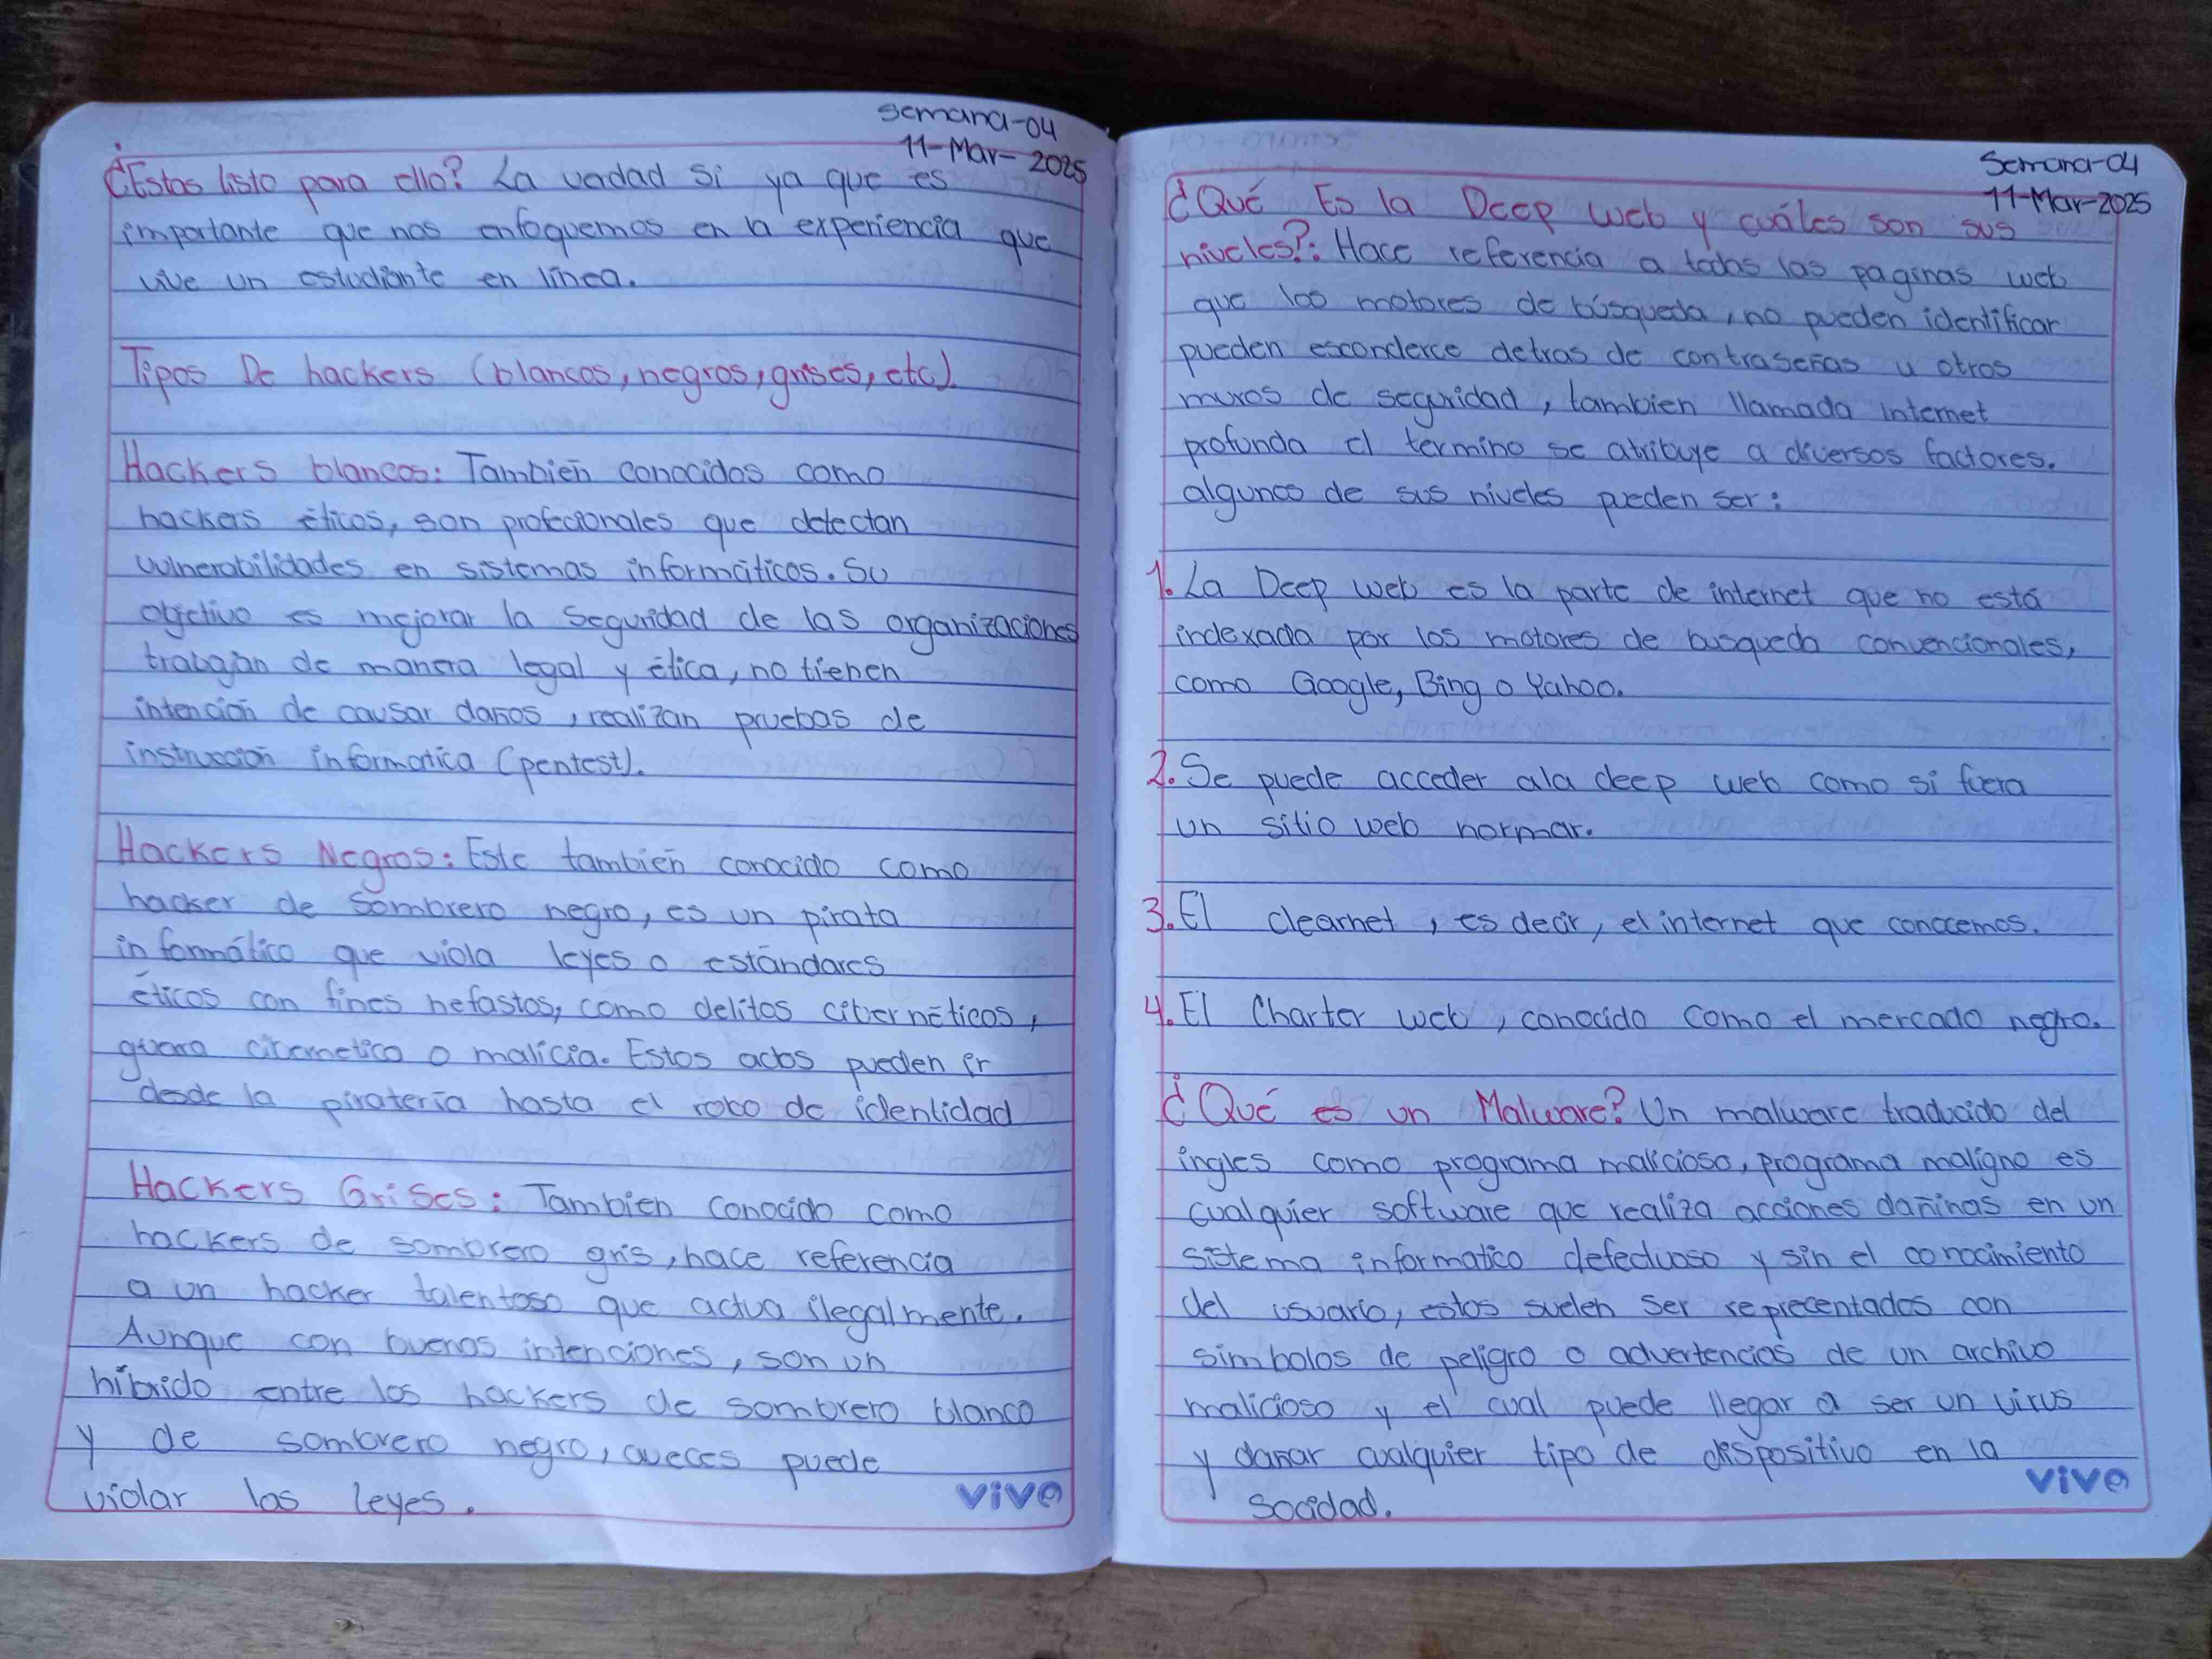 Semana-04
11-Mar-2025
¿Estas listo para ello? La verdad si ya que es
importante que nos enfoquemos en la experiencia que
vive un estudiante en línea.
Tipos De hackers (blancos, negros, grises, etc).
Hackers blancos: También conocidos como
hackers éticos, son profecionales que detectan
vulnerabilidades en sistemas informáticos. Su
objetivo es mejorar la seguridad de las organizaciones
trabajan de manera legal y ética, no tienen
intención de causar daños, realizan pruebas de
instrucción informatica (pentest).
Hackers Negros: Este también conocido como
hacker de sombrero negro, es un pirata
informático que viola leyes o estándares
éticos con fines nefastos, como delitos cibernéticos,
guerra cibernetico o malicia. Estos actos pueden ir
desde la piratería hasta el robo de identidad
Hackers Grises: Tambien conocido como
hackers de sombrero gris, hace referencia
a un hacker talentoso que actua ilegalmente.
Aunque con buenas intenciones, son un
híbrido entre los hackers de sombrero blanco
y de sombrero negro, aveces puede
violar las leyes.
vive
Semana-04
11-Mar-2025
¿Qué Es la Deep web y cuáles son sus
niveles?: Hace referencia a todas las paginas web
que los motores de búsqueda, no pueden identificar
pueden esconderce detras de contraseñas u otros
muros de seguridad, tambien llamada internet
profunda el termino se atribuye a diversos factores.
algunos de sus niveles pueden ser:
1. La Deep web es la parte de internet que no está
indexada por los motores de busqueda convencionales,
como Google, Bing o Yahoo.
2. Se puede acceder ala deep web como si fuera
un sitio web normar.
3. El clearnet, es decir, el internet que conocemos.
4. El Charter web, conocido como el mercado negro.
¿Qué es un Malware? Un malware traducido del
ingles como programa malicioso, programa maligno es
cualquier software que realiza acciones dañinas en un
sistema informatico defectuoso y sin el conocimiento
del usuario, estos suelen ser reprecentados con
simbolos de peligro o advertencias de un archivo
malicioso y el cual puede llegar a ser un virus
y dañar cualquier tipo de dispositivo en la
socidad.
vive